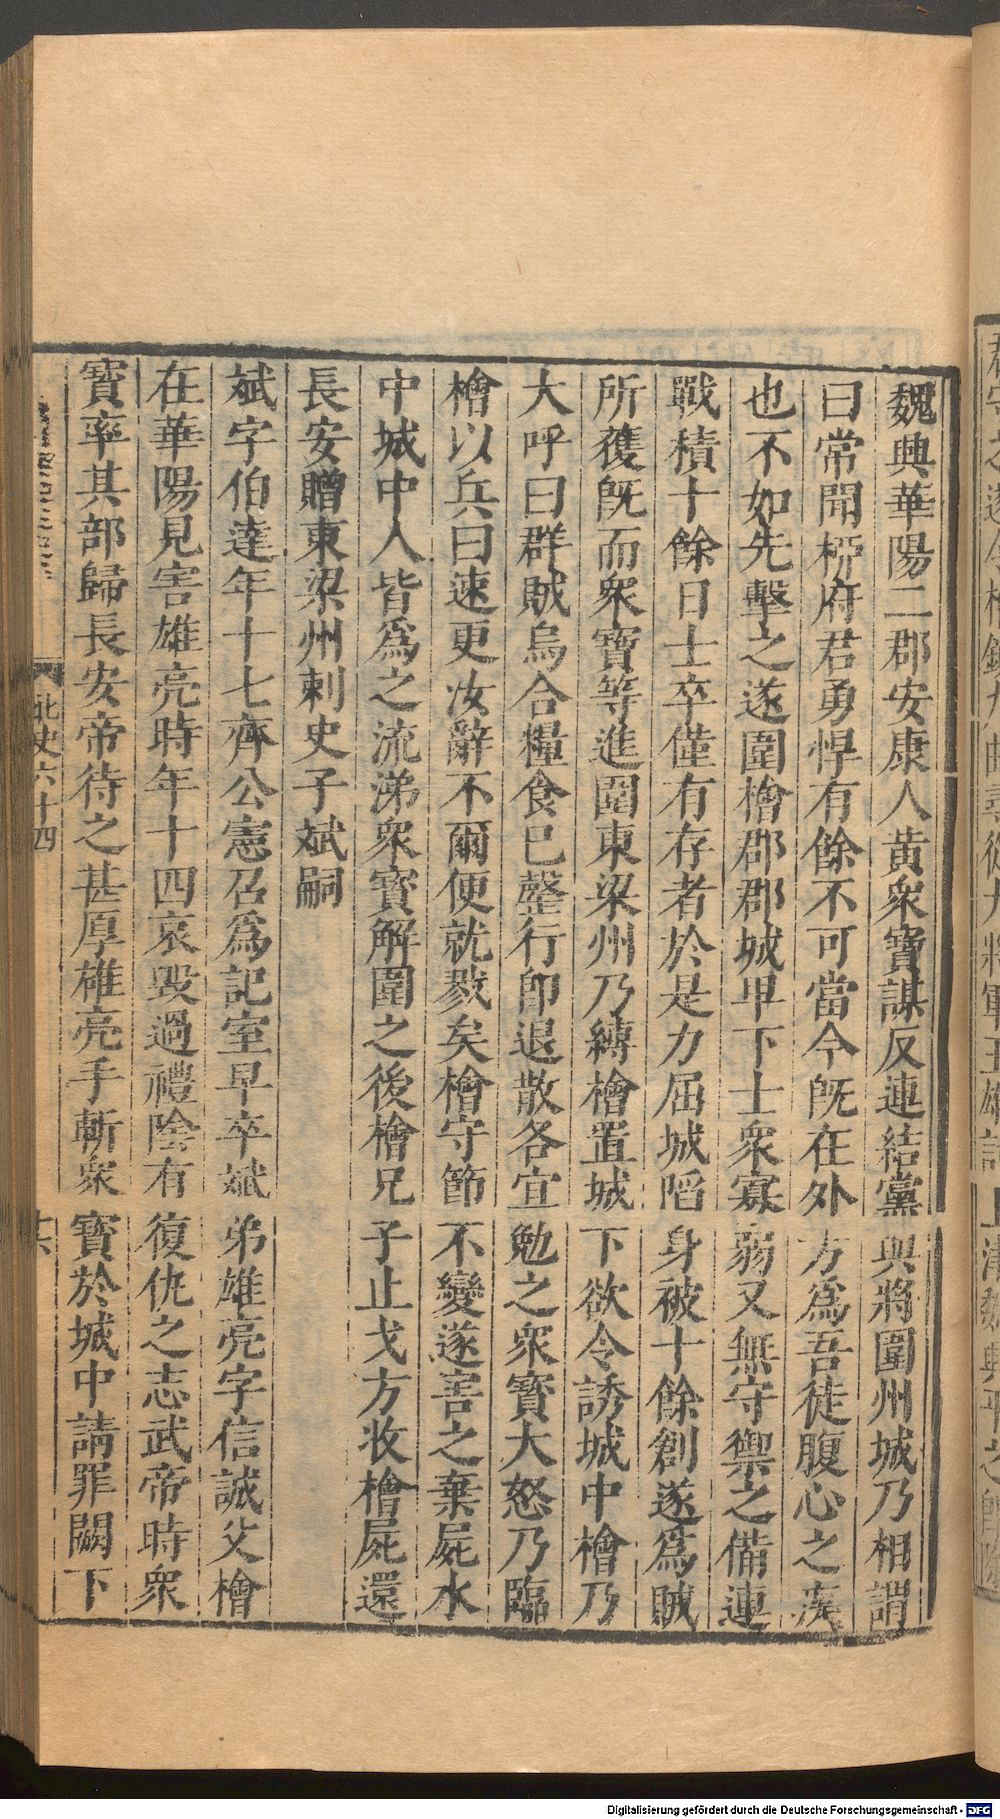 魏興華陽二郡安康人黃衆寶謀反連結黨與將圍州城乃相謂
曰常聞桺府君勇悍有餘不可當今旣在外方爲吾徒腹心之疾
也不如先擊之遂圍檜郡郡城卑下士衆寡弱又無守禦之備連
戰積十餘日士卒僅有存者於是力屈城陷身被十餘創遂爲賊
所獲旣而衆寶等進圍東梁州乃縛檜置城下欲令誘城中檜乃
大呼曰群賊烏合糧食已罄行卽退散各宜勉之衆寶大怒乃臨
檜以兵曰速更汝辭不爾便就戮矣檜守節不變遂害之棄屍水
中城中人皆爲之流涕衆寶解圍之後檜兄子止戈方收檜屍還
長安贈東梁州刺史子斌嗣
斌字伯達年十七齊公憲召爲記室早卒斌弟雄亮字信誠父檜
在華陽見害雄亮時年十四哀毀過禮陰有復仇之志武帝時衆
寶率其部歸長安帝待之甚厚雄亮手斬衆寶於城中請罪闕下
北史六十四
十六
Digitalisierung gefördert durch die Deutsche Forschungsgemeinschaft - DFG